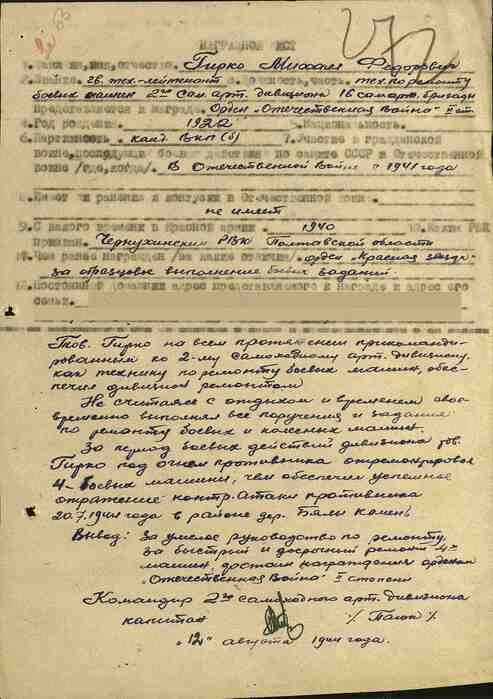 НАГРАДНОЙ ЛИСТ
1. Фамилия, имя, отчество. Гирко Михаил Федорович
2. Звание. гв. тех-лейтенант 3. Должность, часть. тех. по ремонту
боевых машин 2го Сам. арт. дивизиона 16 сам арт. бригады
представляется к награде. Орден „Отечественная Война" II ст.
4. Год рождения. 1922 5. Национальность.
6. Партийность. канд ВКП(б) 7. Участие в гражданской
войне, последующих боевых действиях по защите СССР и Отечественной
войне /где, когда/. В Отечественной Войне с 1941 года
8. Имеет ли ранения и контузии в Отечественной войне.
не имеет
9. С какого времени в Красной армии. 1940 10. Каким РВК
призван. Чернухинским РВК Полтавской области
11. Чем ранее награжден /за какие отличия/. орден „Красная звезда"
за образцовое выполнение боевых заданий.
12. Постоянный домашний адрес представляемого к награде и адрес его
семьи.
Тов. Гирко на всем протяжении прикоманди-
рованным ко 2-му Самоходному арт. дивизиону,
как технику по ремонту боевых машин, обес-
печил дивизион ремонтом
Не считаясь с отдыхом и временем свое-
временно выполнял все поручения и задания
по ремонту боевых и колесных машин.
За период боевых действий дивизиона тов.
Гирко под огнем противника отремонтировал
4 боевых машины, чем обеспечил успешное
отражение контр. Атаки противника
20.7.1944 года в районе дер. Бялы Камень
Вывод: За умелое руководство по ремонту,
за быстрый и досрочный ремонт 4х
машин, достоин награждения орденом
„Отечественная Война" II степени
Командир 2го самоходного арт. дивизиона
капитан
„12" августа 1944 года.